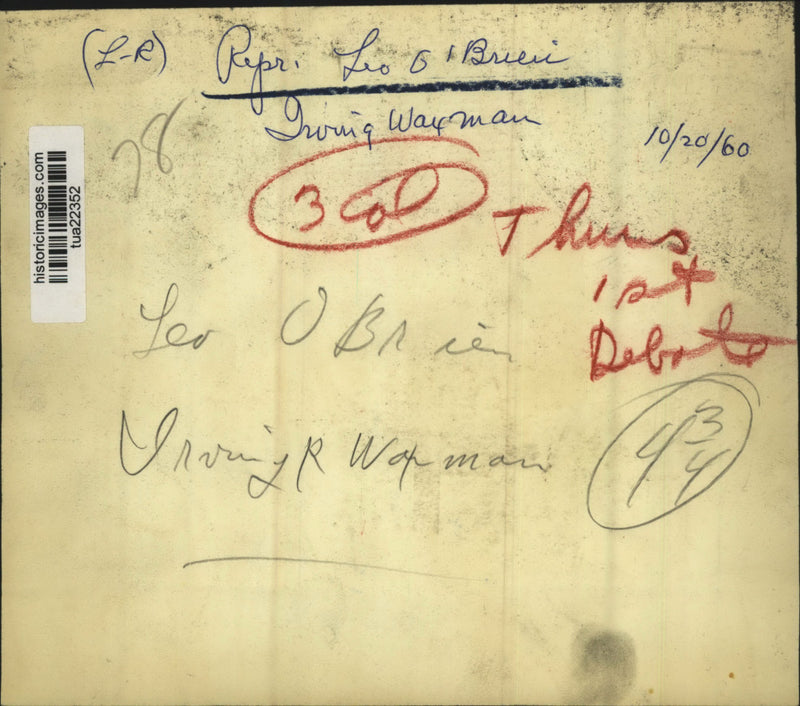 (L-R) Repr. Leo O'Brien
Irving Waxman
10/20/60
78
historicimages.com
tua22352
3 Col
Thurs
1st
Debate
Leo O Brien
Irving R Waxman
4 3/4